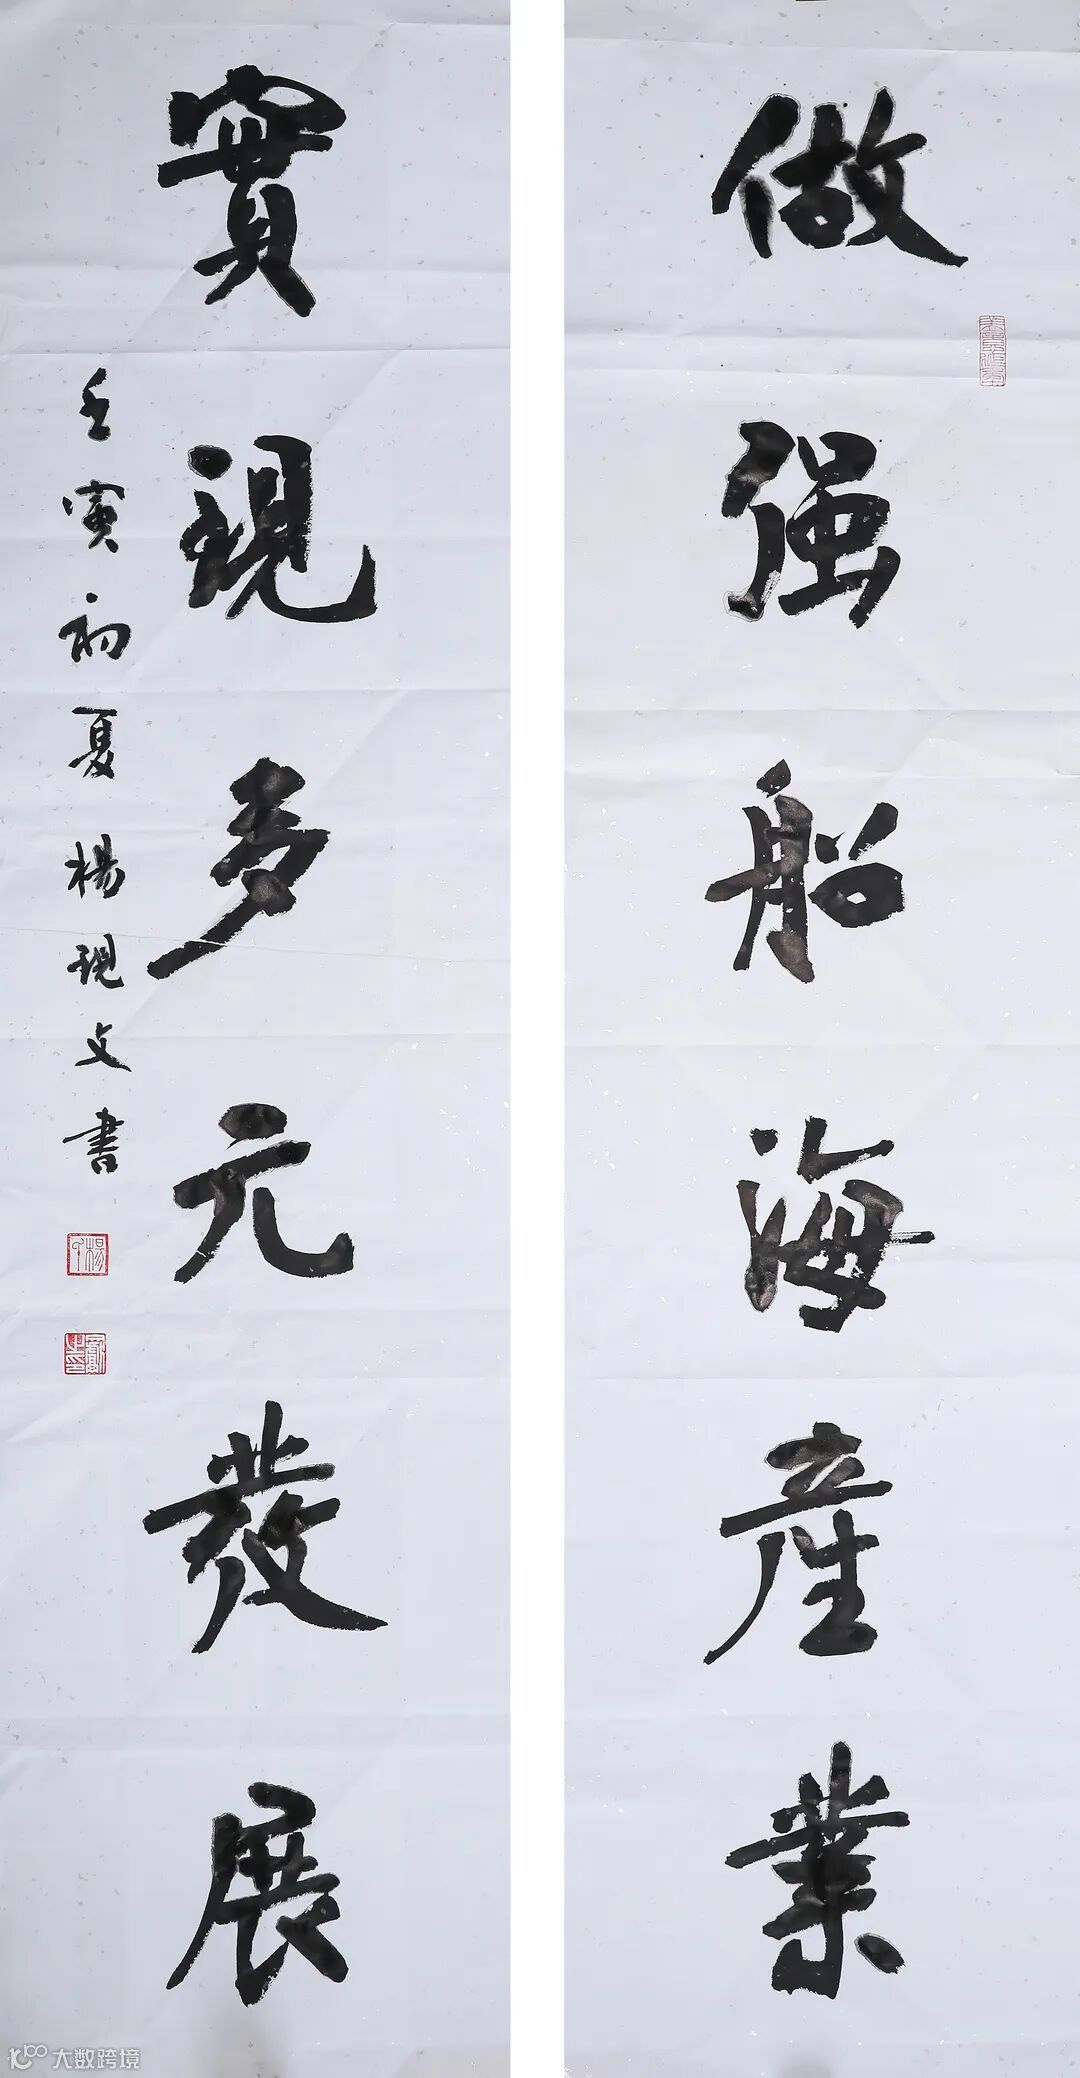 做强船海産業
實現多元發展
壬寅初夏楊現文書
大数跨境